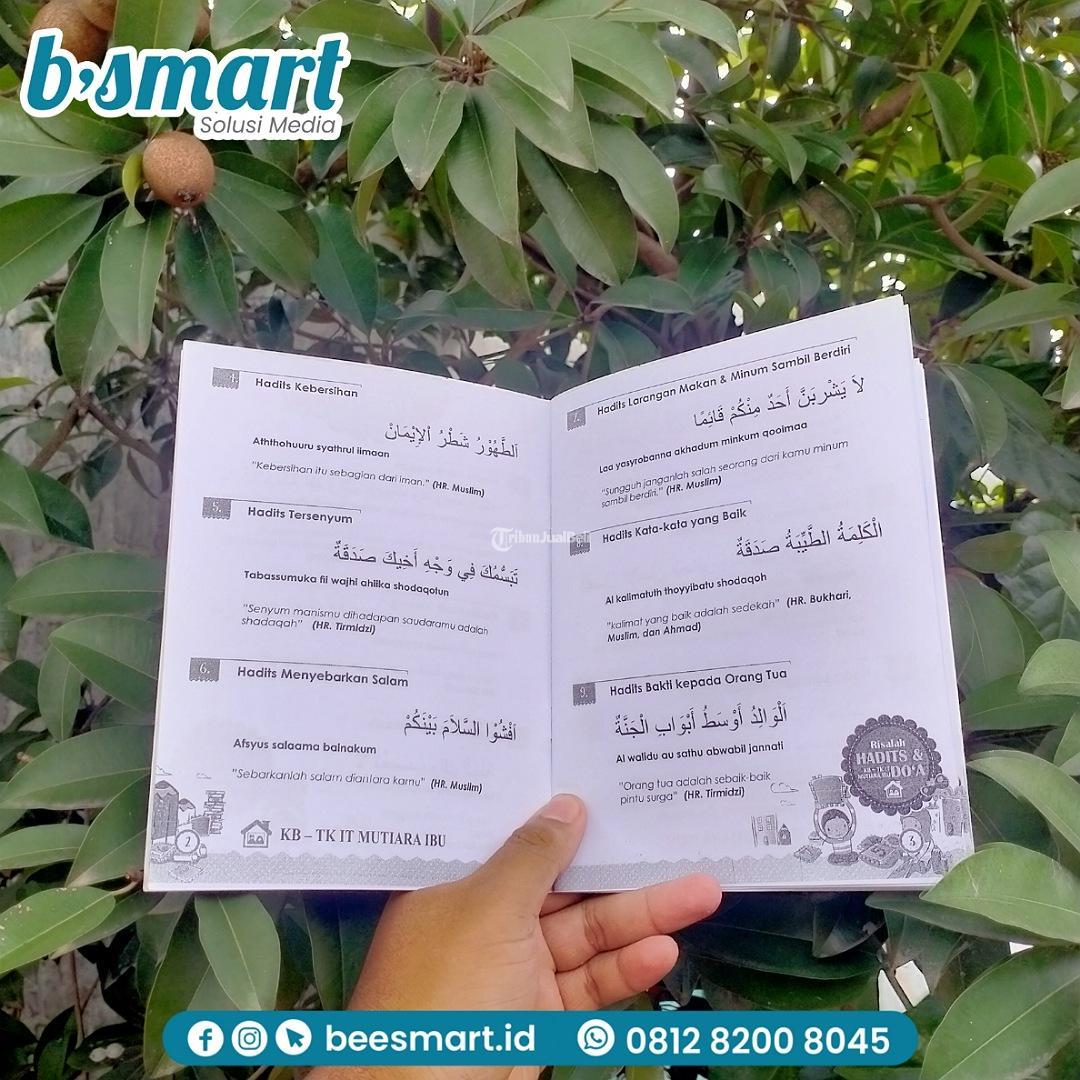 b-smart
Solusi Media
4.
Hadits Kebersihan
اَلطَّهُوْرُ شَطْرُ اْلإِيْمَانْ
Aththohuuru syathrul iimaan
"Kebersihan itu sebagian dari iman." (HR. Muslim)
5.
Hadits Tersenyum
تَبَسُّمُكَ فِي وَجْهِ أَخِيكَ صَدَقَةٌ
Tabassumuka fii wajhi ahiika shodaqotun
"Senyum manismu dihadapan saudaramu adalah
shadaqah" (HR. Tirmidzi)
6.
Hadits Menyebarkan Salam
اَفْشُوْا السَّلاَمَ بَيْنَكُمْ
Afsyus salaama bainakum
"Sebarkanlah salam diantara kamu" (HR. Muslim)
2
KB – TK IT MUTIARA IBU
7.
Hadits Larangan Makan & Minum Sambil Berdiri
لاَ يَشْرَبَنَّ أَحَدٌ مِنْكُمْ قَائِمًا
Laa yasyrobanna akhadum minkum qooimaa
"Sungguh janganlah salah seorang dari kamu minum
sambil berdiri." (HR. Muslim)
8.
Hadits Kata-kata yang Baik
الْكَلِمَةُ الطَّيِّبَةُ صَدَقَةٌ
Al kalimatuth thoyyibatu shodaqoh
"kalimat yang baik adalah sedekah" (HR. Bukhari,
Muslim, dan Ahmad)
9.
Hadits Bakti kepada Orang Tua
اَلْوَالِدُ أَوْسَطُ أَبْوَابِ الْجَنَّةِ
Al walidu au sathu abwabil jannati
"Orang tua adalah sebaik-baik
pintu surga" (HR. Tirmidzi)
Risalah
HADITS &
KB – TK IT
MUTIARA IBU
DO'A
3
TribunJualBeli
beesmart.id
0812 8200 8045